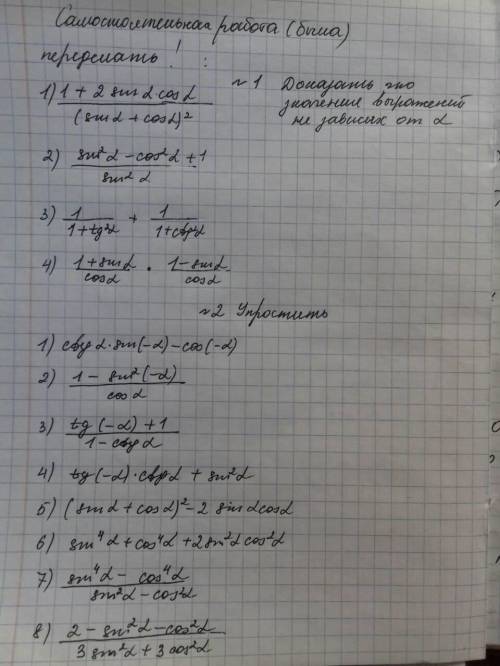 Самостоятельная работа (была)
переделать! :
№1 Доказать что
значение выражений
не зависих от α
1) (1 + 2 sin α · cos α) / (sin α + cos α)²
2) (sin²α − cos²α + 1) / sin²α
3) 1 / (1 + tg²α) + 1 / (1 + ctg²α)
4) (1 + sin α) / cos α · (1 − sin α) / cos α
№2 Упростить
1) ctg α · sin(−α) − cos(−α)
2) (1 − sin²(−α)) / cos α
3) (tg(−α) + 1) / (1 − ctg α)
4) tg(−α) · ctg α + sin²α
5) (sin α + cos α)² − 2 sin α cos α
6) sin⁴α + cos⁴α + 2 sin²α cos²α
7) (sin⁴α − cos⁴α) / (sin²α − cos²α)
8) (2 − sin²α − cos²α) / (3 sin²α + 3 cos²α)